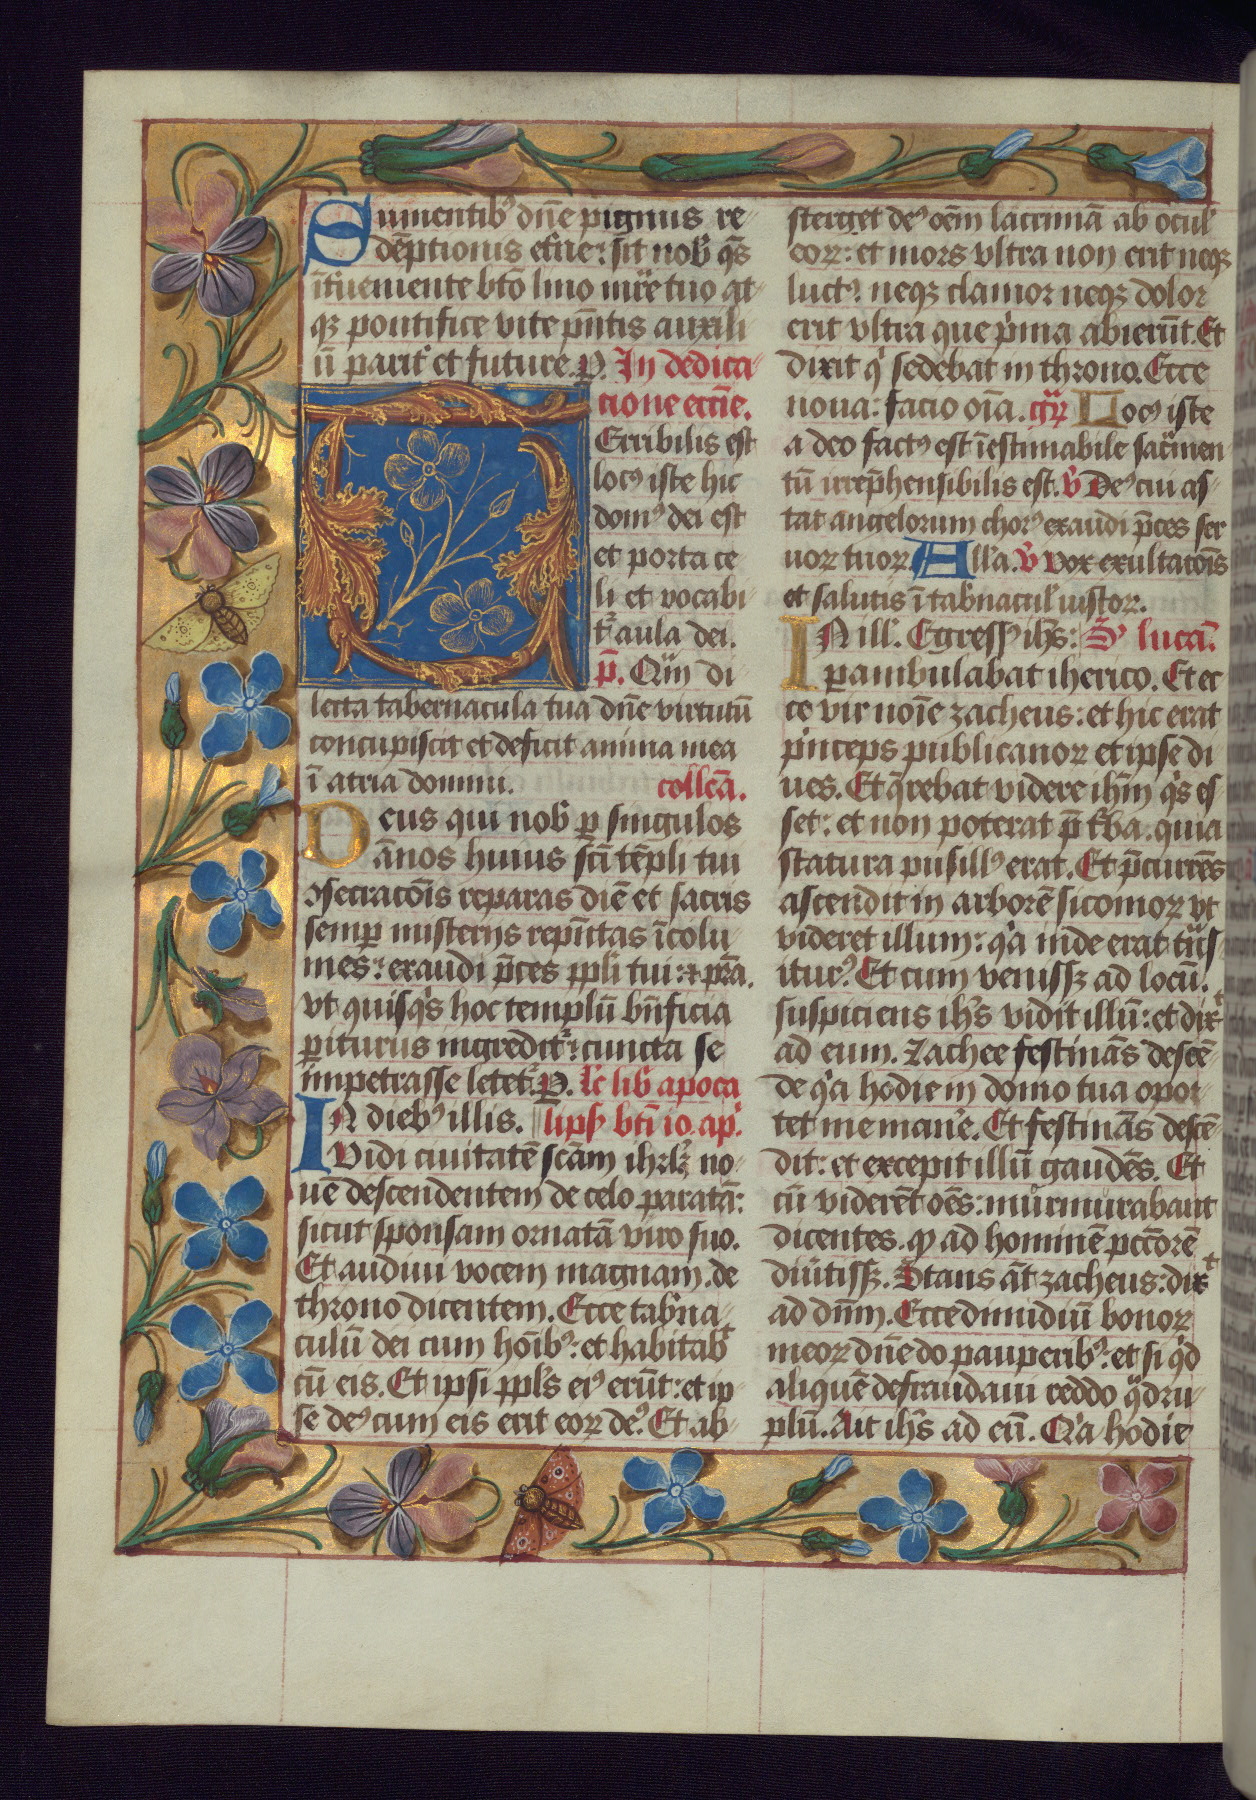 Sumentib⁹ dn̄e pignus re-
dēptionis et̄ne: sit nob̄ q̄s
īt̄ueniente bt̄o lino mr̄e tuo at-
qꝫ pontifice vite p̄ntis auxili
ū parit̄ et future. P. In dedica-
cione eccīe.
Terribilis est
loc⁹ iste hic
dom⁹ dei est
et porta ce
li et vocabi-
t̄ aula dei.
p̄. Q̄m di-
lecta tabernacula tua dn̄e virtutū
concupiscit et deficit anima mea
ī atria domini. collcā.
Deus qui nob̄ p̱ singulos
ānos huius sc̄i tēpli tui
ꝯsecracōis reparas diē et sacris
semp̱ misterijs rep̄ntas īcolu
mes: exaudi p̄ces pp̄li tui: ⁊ p̄rā.
vt quisq̄s hoc templū bn̄ficia
p̱iturus ingredit̄: cuncta se
impetrasse letet̄. P. Lc̄ lib̄ apoca
In dieb⁹ illis. lips̄ bt̄i io. ap̄.
Vidi ciuitatē sc̄am ihrl̄ꝫ no-
uē descendentem de celo paratā:
sicut sponsam ornatā viro suo.
Et audiui vocem magnam. de
throno dicentem. Ecce tab̄na-
culū dei cum hoīb⁹: et habitab̄
cū eis. Et ipsi pp̄ls ei⁹ erūt: et ip-
se de⁹ cum eis erit eoꝝ de⁹. Et ab-
sterget de⁹ oēm lacrimā ab ocul̄
eoꝝ: et mors vltra non erit neqꝫ
luct⁹. neqꝫ clamor neqꝫ dolor
erit vltra que p̄ma abierūt. Et
dixit q̄ sedebat in throno. Ecce
noua: facio oīa. gr̄ Loc⁹ iste
a deo fact⁹ est īestimabile sac̄men
tū irrep̄hensibilis est. v̄ De⁹ cui as-
tat angelorum chor⁹ exaudi p̄ces ser
uoꝝ tuoꝝ. All̄a. v̄ Vox exultacōis
et salutis ī tab̄nacul̄ iustoꝝ.
In ill̄. Egress⁹ ih̄s: S̄ lucā.
p̱ambulabat iherico. Et ec
ce vir noīe zacheus: et hic erat
p̄nceps publicanoꝝ et ipse di
ues. Et q̄rebat videre ih̄m q̄s es-
set: et non poterat p̄ t̄ba: quia
statura pusill⁹ erat. Et p̄currēs
ascendit in arborē sicomoꝝ vt
videret illum: q̄a inde erat t̄ns-
itur⁹. Et cum venissꝫ ad locū.
suspiciens ih̄s vidit illū: et dixᵗ
ad eum. Zachee festinās descē-
de q̄a hodie in domo tua opor-
tet me mane̅. Et festinās descē-
dit: et excepit illū gaudēs. Et
cū viderēt oēs: murmurabant
dicentes. qꝫ ad hominē pctōrē
diūtissꝫ. Stans āt zacheus: dixᵗ
ad dn̄m. Ecce dimidiū bonoꝝ
meoꝝ dn̄e do pauperib⁹: et si q̄d
aliquē defraudaui reddo q̄dru-
plū. Ait ih̄s ad eū. Q̄a hodie